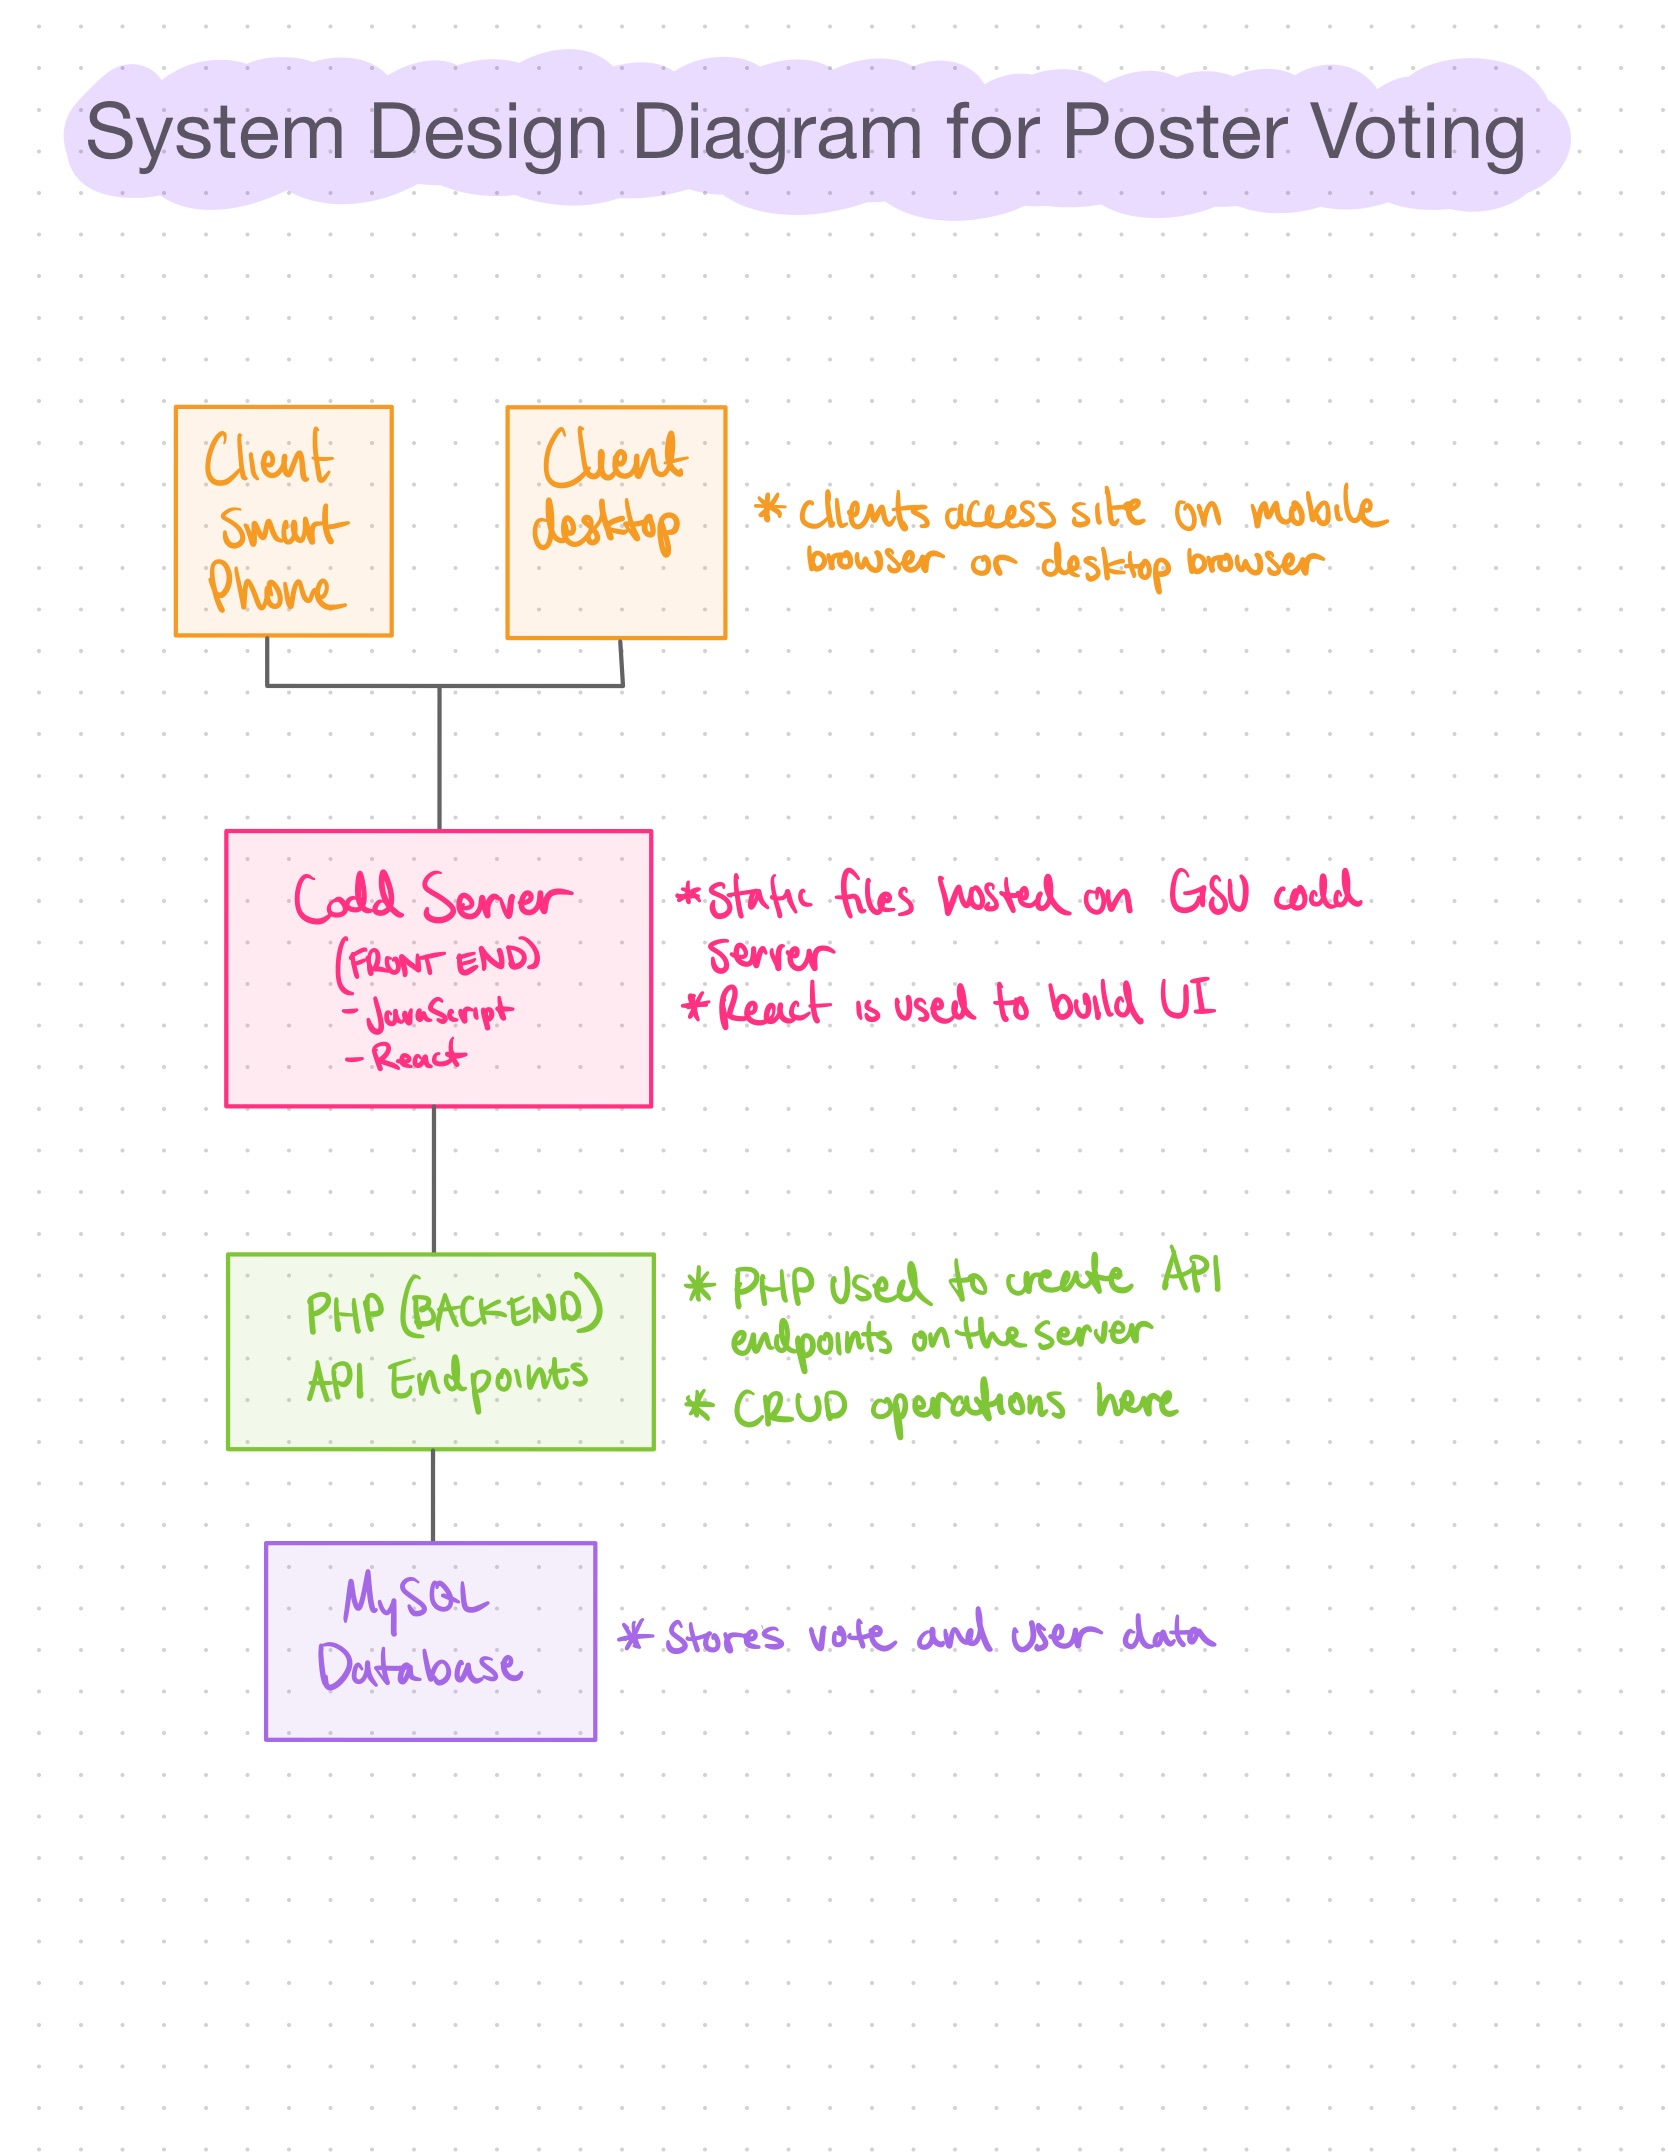 System Design Diagram for Poster Voting
Client
Smart
Phone
Client
desktop
* Clients access site on mobile
browser or desktop browser
Codd Server
(FRONT END)
- JavaScript
- React
* Static files hosted on GSU codd
server
* React is used to build UI
PHP (BACKEND)
API Endpoints
* PHP used to create API
endpoints on the server
* CRUD operations here
MySQL
Database
* Stores vote and user data